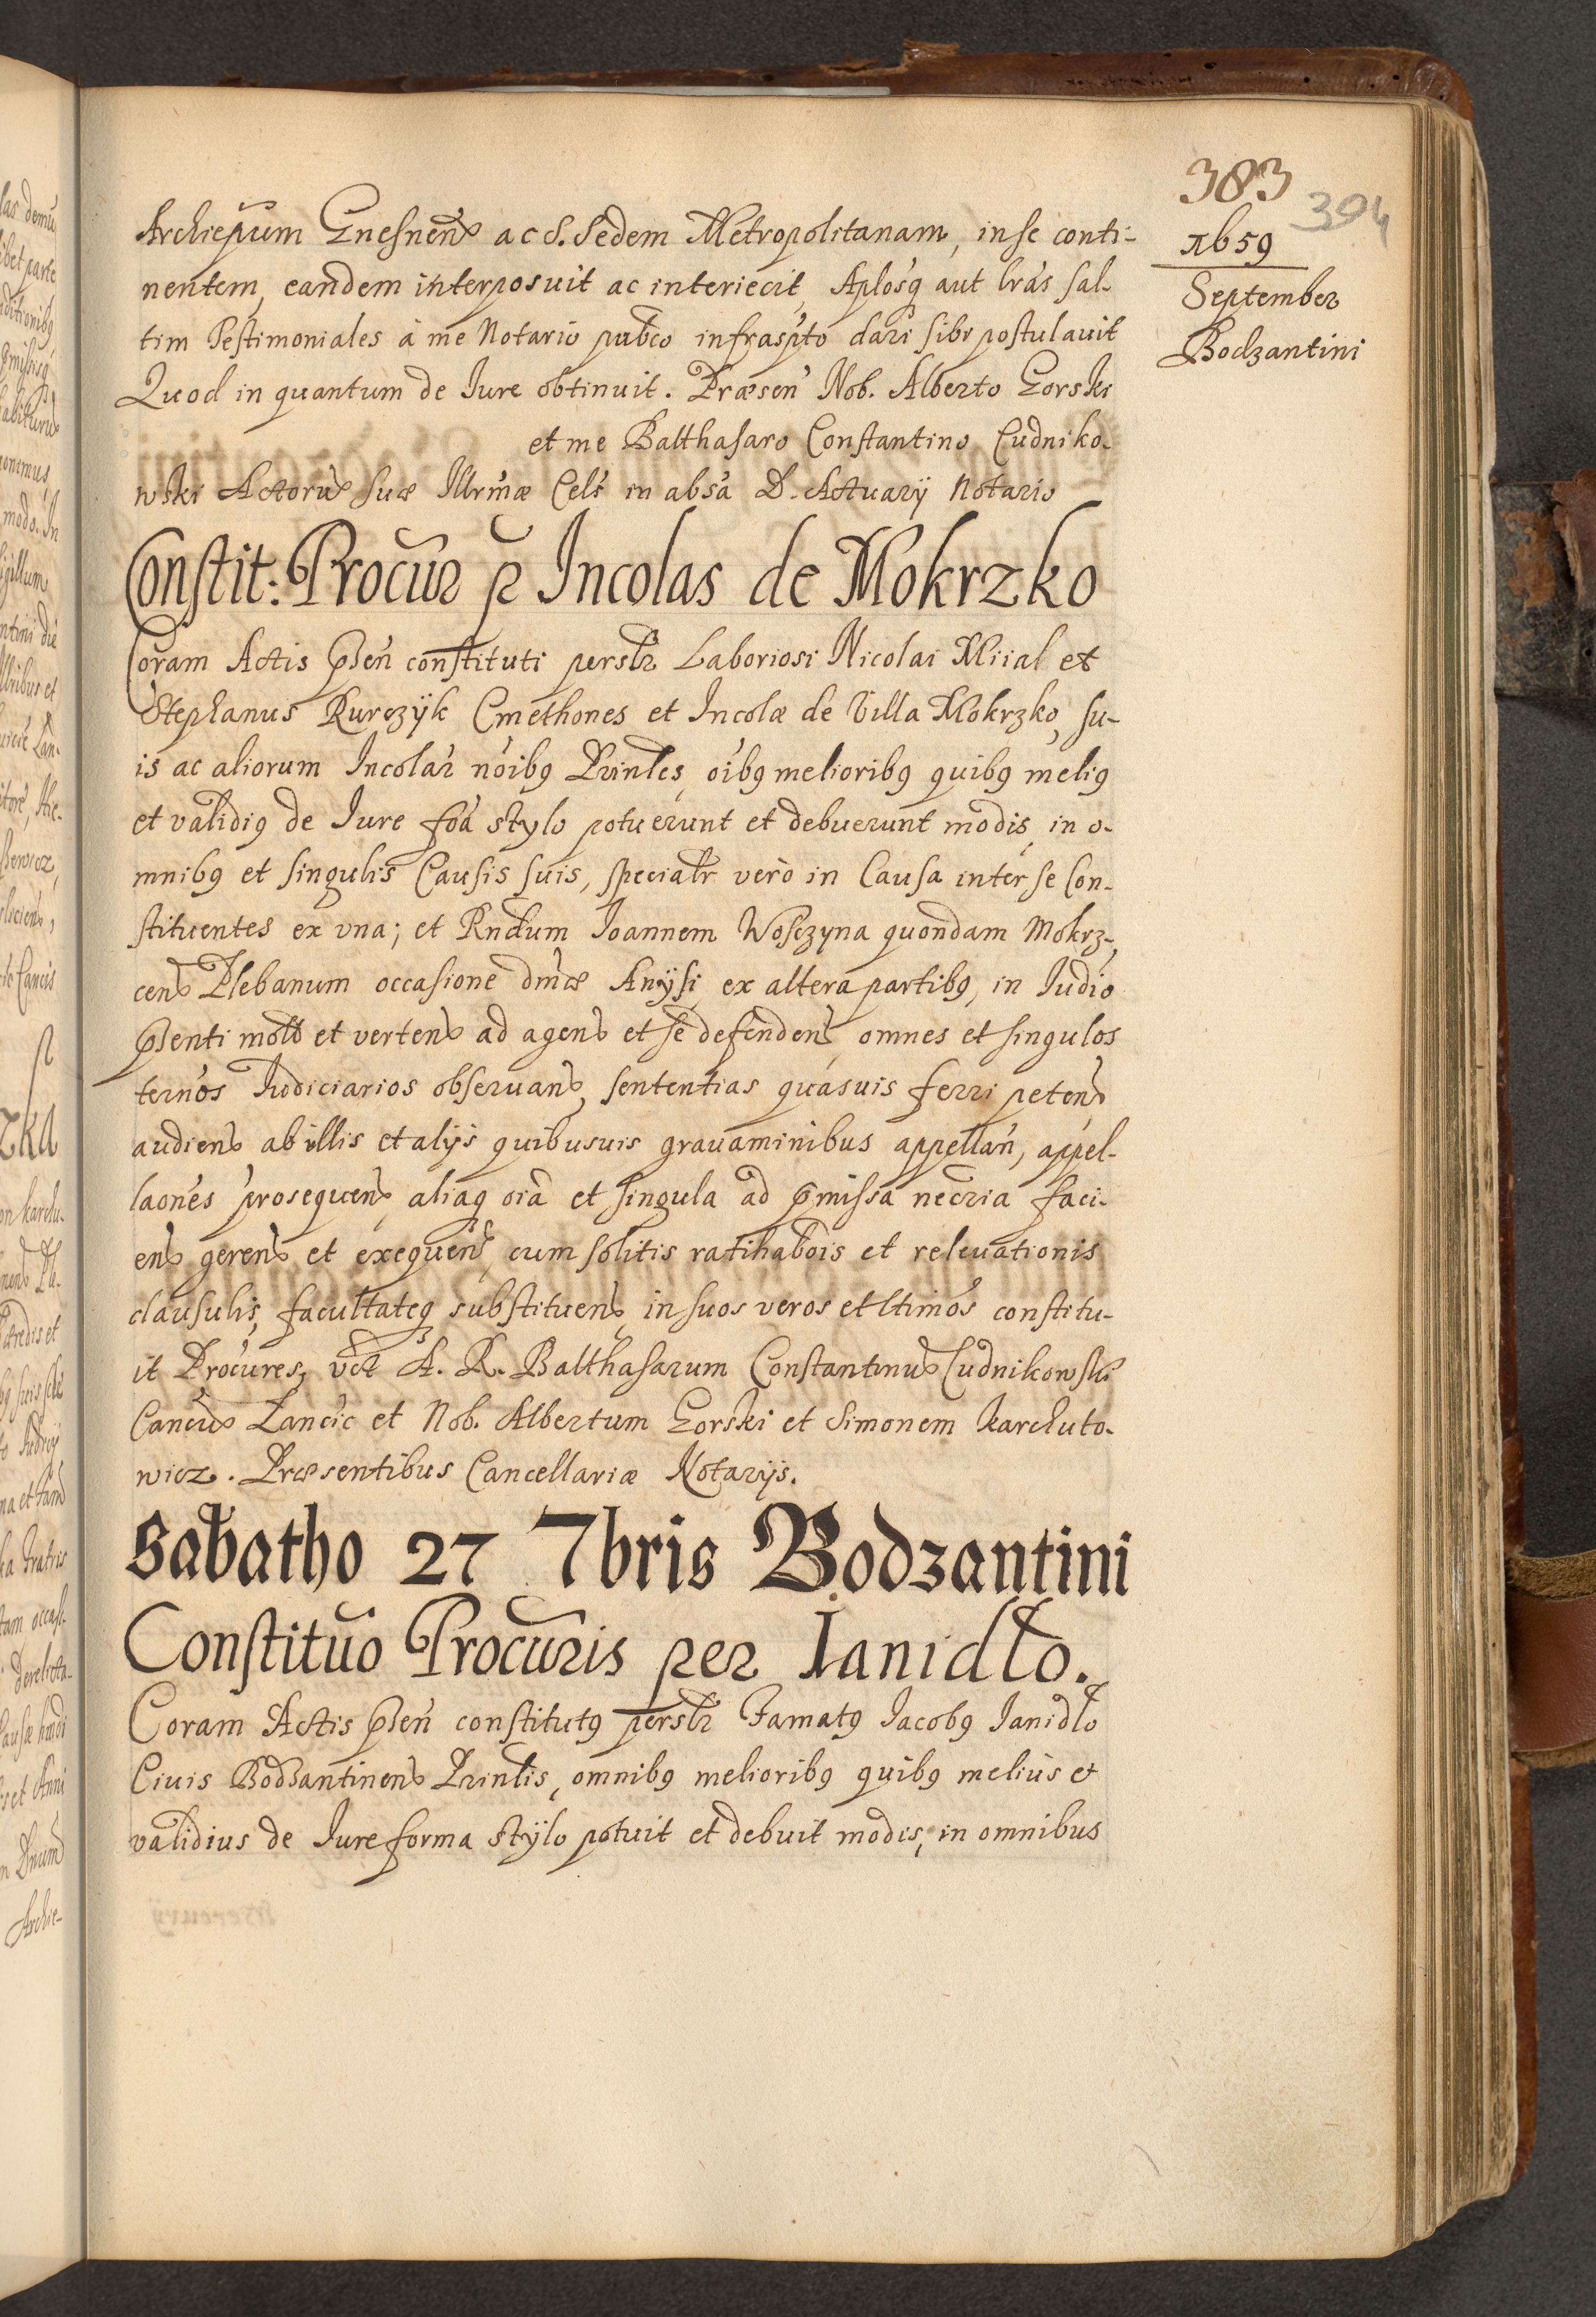 383
394
1659
September
Bodzantini
Archiepum Gnesnen ac S. Sedem Metropolitanam, in se conti-
nentem, eandem interposuit ac interiecit, Aplosq aut lras sal-
tim Testimoniales à me Notario pubco infraspto dari sibi postulauit
Quod in quantum de Iure obtinuit. Præsen Nob. Alberto Gorski
et me Balthasaro Constantino Cudniko-
wski Actoru suæ Illrmæ Cels in absa D. Actuarÿ Notario
Constit: Procur p Incolas de Mokrzko
Coram Actis psen constituti perslr Laboriosi Nicolai Miial et
Stephanus Kurczÿk Cmethones et Incolæ de Villa Mokrzko, su-
is ac aliorum Incolar noibq Prinles, oibq melioribq quibq meliq
et validiq de Iure foa stylo potuerunt et debuerunt modis, in o-
mnibq et singulis Causis suis, specialr verò in Causa inter se Con-
stituentes ex vna; et Rndum Ioannem Wosczyna quondam Mokrz-
cen Plebanum occasione dmæ Anÿsi, ex altera partibq, in Iudio
psenti mott et verten ad agen et se defenden, omnes et singulos
ternos Iudiciarios obseruan, sententias quasuis ferri peten
audien ab illis et alÿs quibusuis grauaminibus appellan, appel-
laones prosequen, aliaq oia et singula ad pmissa necria faci-
en geren et exequen, cum solitis ratihabois et releuationis
clausulis, facultateq substituen, in suos veros et ltimos constitu-
it Procures, vct A. R. Balthasarum Constantinu Cudnikowski
Cancu Lancic et Nob. Albertum Gorski et Simonem Karchuto-
wicz. Præsentibus Cancellariæ Notarÿs.
Sabatho 27 7bris Bodzantini
Constituo Procuris per Ianidło.
Coram Actis psen constitutq perslr Famatq Iacobq Ianidło
Ciuis Bodzantinen Prinlis, omnibq melioribq quibq meliùs et
validius de Iure forma stÿlo potuit et debuit modis, in omnibus